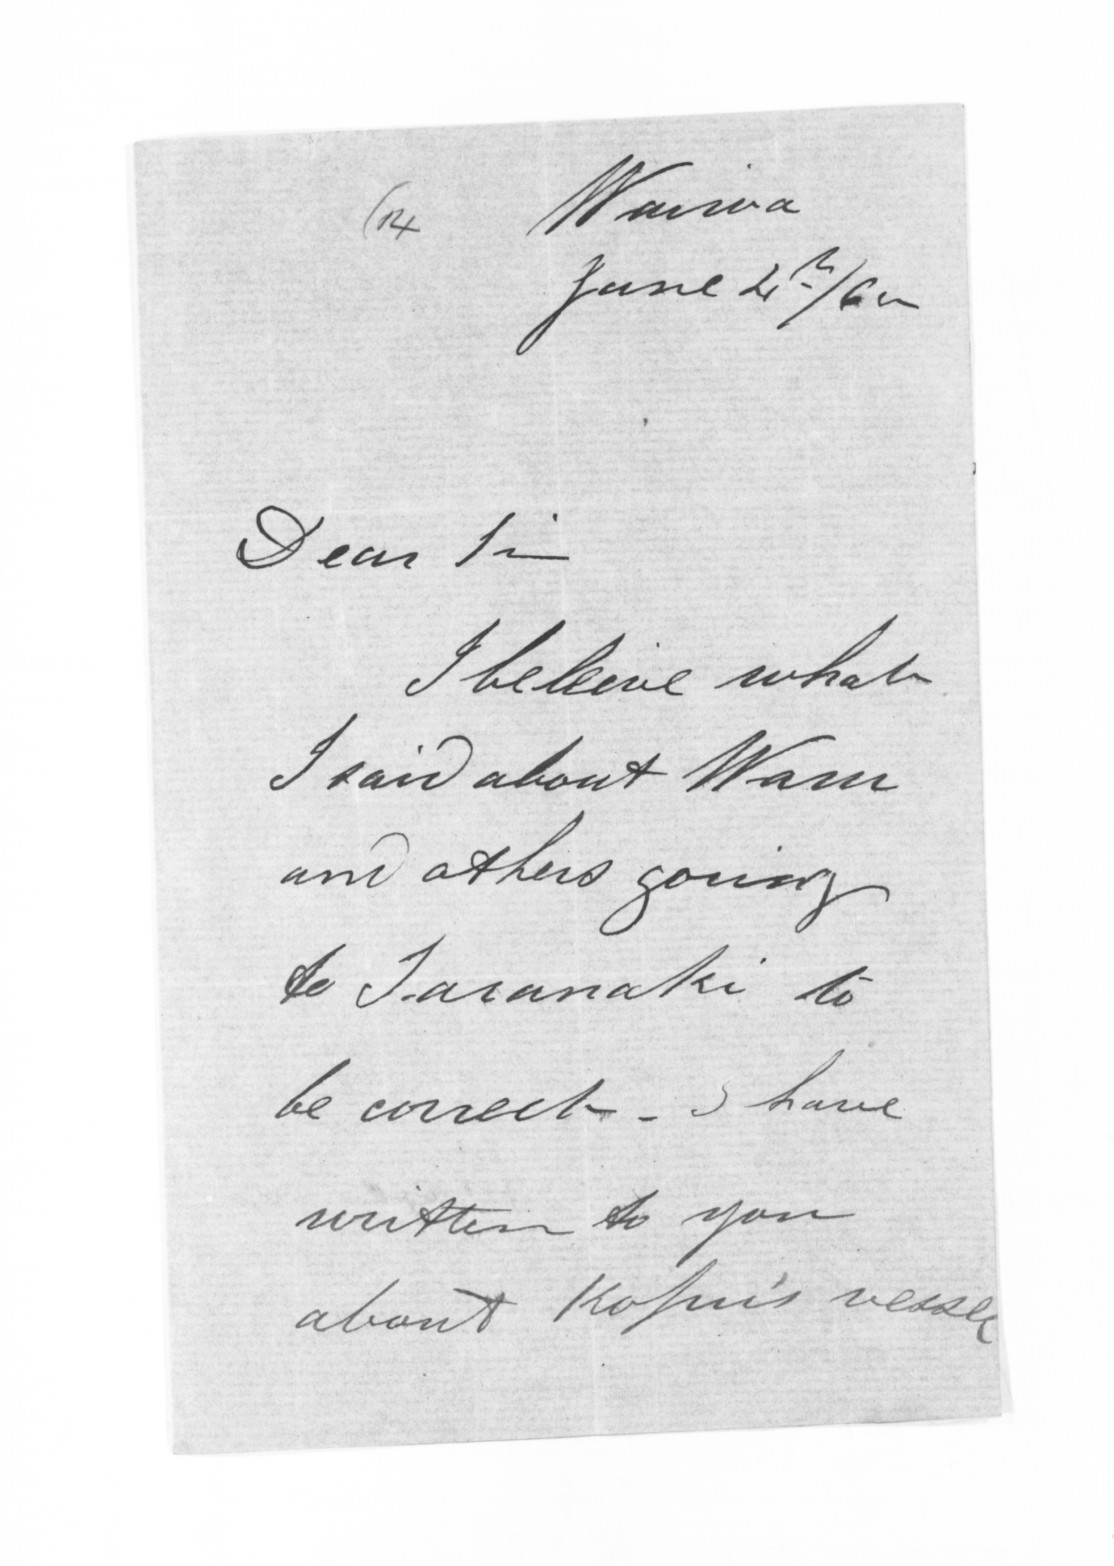 Wairoa
June 4th/60
Dear Sir
I beleive what
I said about Waru
and others going
to Taranaki to
be correct - I have
written to you
about Kopu's vessel